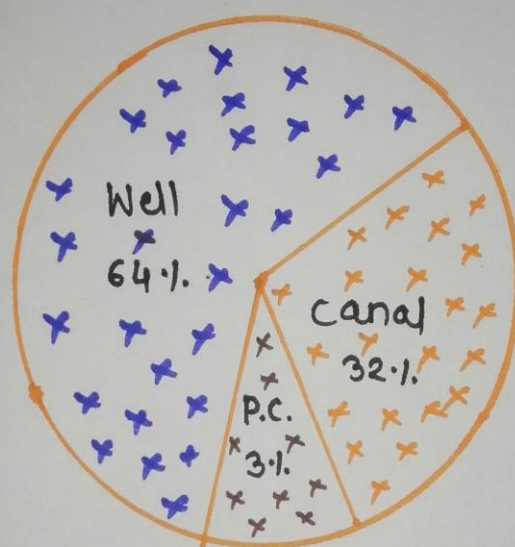 Well
64%
Canal
32%
P.C.
3%